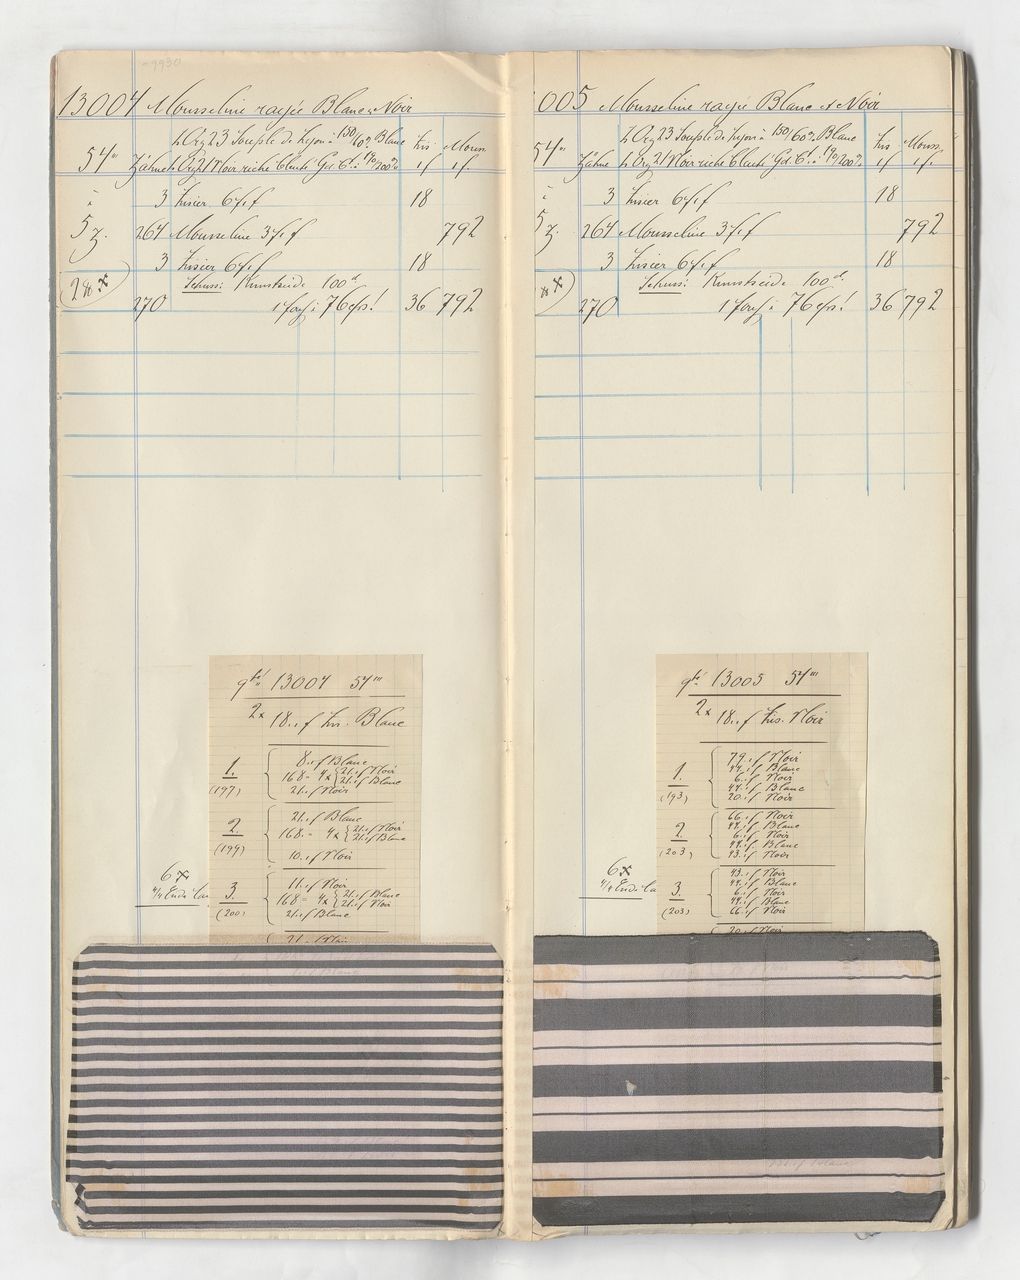 13004 Mousseline rayée Blanc et Noir
2 Org 23 Souple de Lyon à 150/60% Blanc Lis Mouss.
54'''
Zähne 2 Org 21 Noir riche 190/200% 1f 1f.
à 3 Lisier 6f.f 18
5 z. 264 Mousseline 3f.f 792
3 Lisier 6f.f 18
Schuss: Kunstseide 100 d.
270 1 fach à 76 cps! 36 792
gfs 13004 54'''
2x 18.,f Lis. Blanc
1. 8.,f Blanc
168 = 4x { 21.,f Noir
21.,f Blanc
(197) 21.,f Noir
2. 21.,f Blanc
168. = 4x { 21.,f Noir
21.,f Blanc
(199) 10.,f Noir
6x 3. 11.,f Noir
4/4 Ende 168 = 4x { 21.,f Blanc
21.,f Noir
(200) 21.,f Blanc
21.,f Noir
005 Mousseline rayée Blanc et Noir
2 Org 23 Souple de Lyon à 150/60% Blanc Lis Mouss.
54'''
Zähne 2 Org 21 Noir riche 190/200% 1f 1f.
à 3 Lisier 6f.f 18
5 z. 264 Mousseline 3f.f 792
3 Lisier 6f.f 18
Schuss: Kunstseide 100 d.
270 1 fach à 76 cps! 36 792
gfs 13005 54'''
2x 18.,f Lis. Noir
1. 79.,f Noir
44.,f Blanc
6.,f Noir
44.,f Blanc
(193) 20.,f Noir
2. 66.,f Noir
44.,f Blanc
6.,f Noir
44.,f Blanc
(203) 43.,f Noir
6x 3. 43.,f Noir
4/4 Ende 44.,f Blanc
6.,f Noir
44.,f Blanc
(203) 66.,f Noir
20.,f Noir